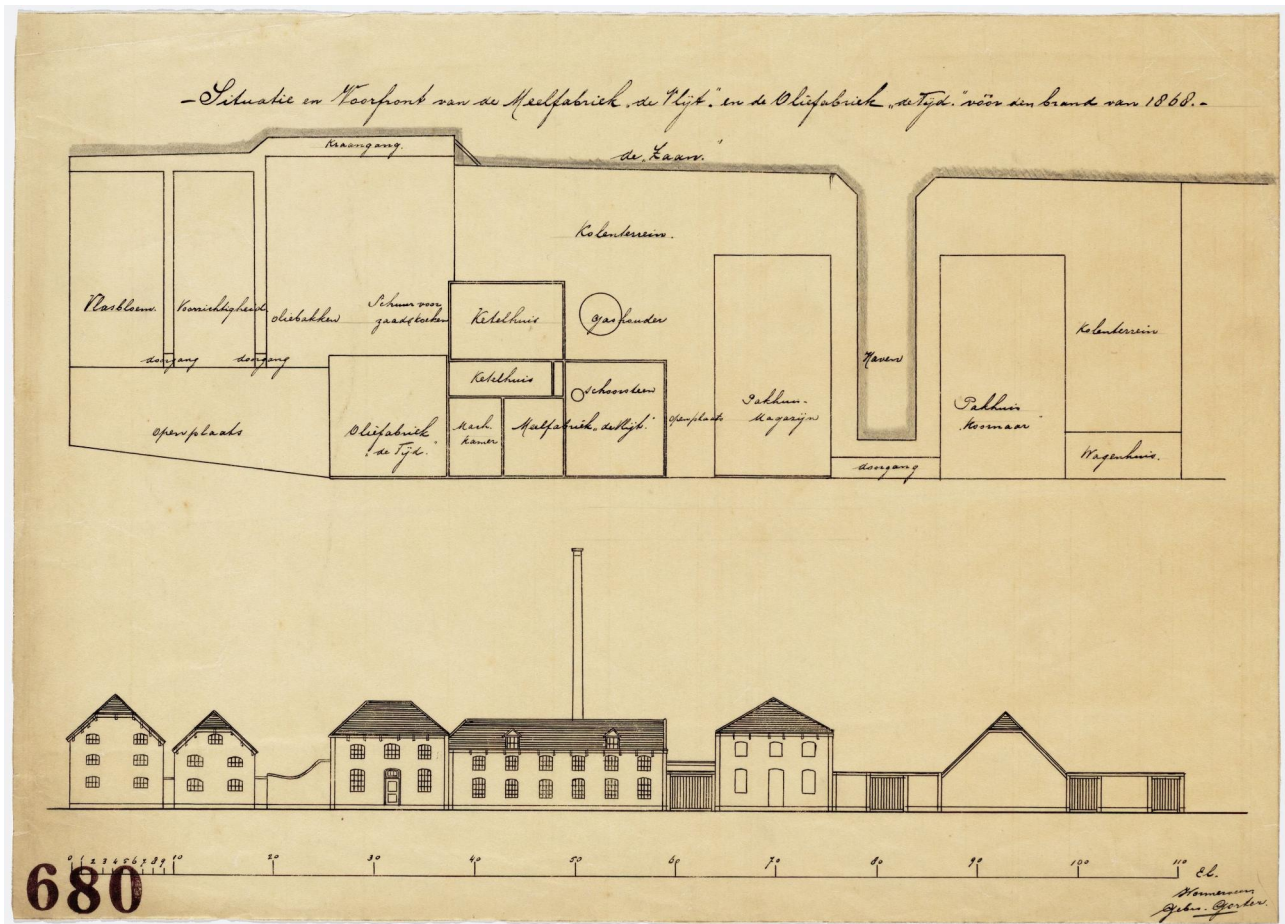 Situatie en Voorfront van de Meelfabriek „de Vlijt" en de Oliefabriek „de Tijd." vóór den brand van 1868.
Kraangang.
de „Zaan."
Kolenterrein.
Vlasbloem.
Voorzichtigheid
oliebakken
Schuur voor
zaad & koeken
Ketelhuis
gashouder
Kolenterrein
doorgang
doorgang
Haven
Ketelhuis
schoorsteen
open plaats
Oliefabriek
„de Tijd."
Mach.
kamer
Meelfabriek „de Vlijt."
open plaats
Pakhuis-
Magazijn
Pakhuis
Wagenhuis.
doorgang
0 1 2 3 4 5 6 7 8 9 10 20 30 40 50 60 70 80 90 100 110 El.
680
Wormerveer
Gebrs.